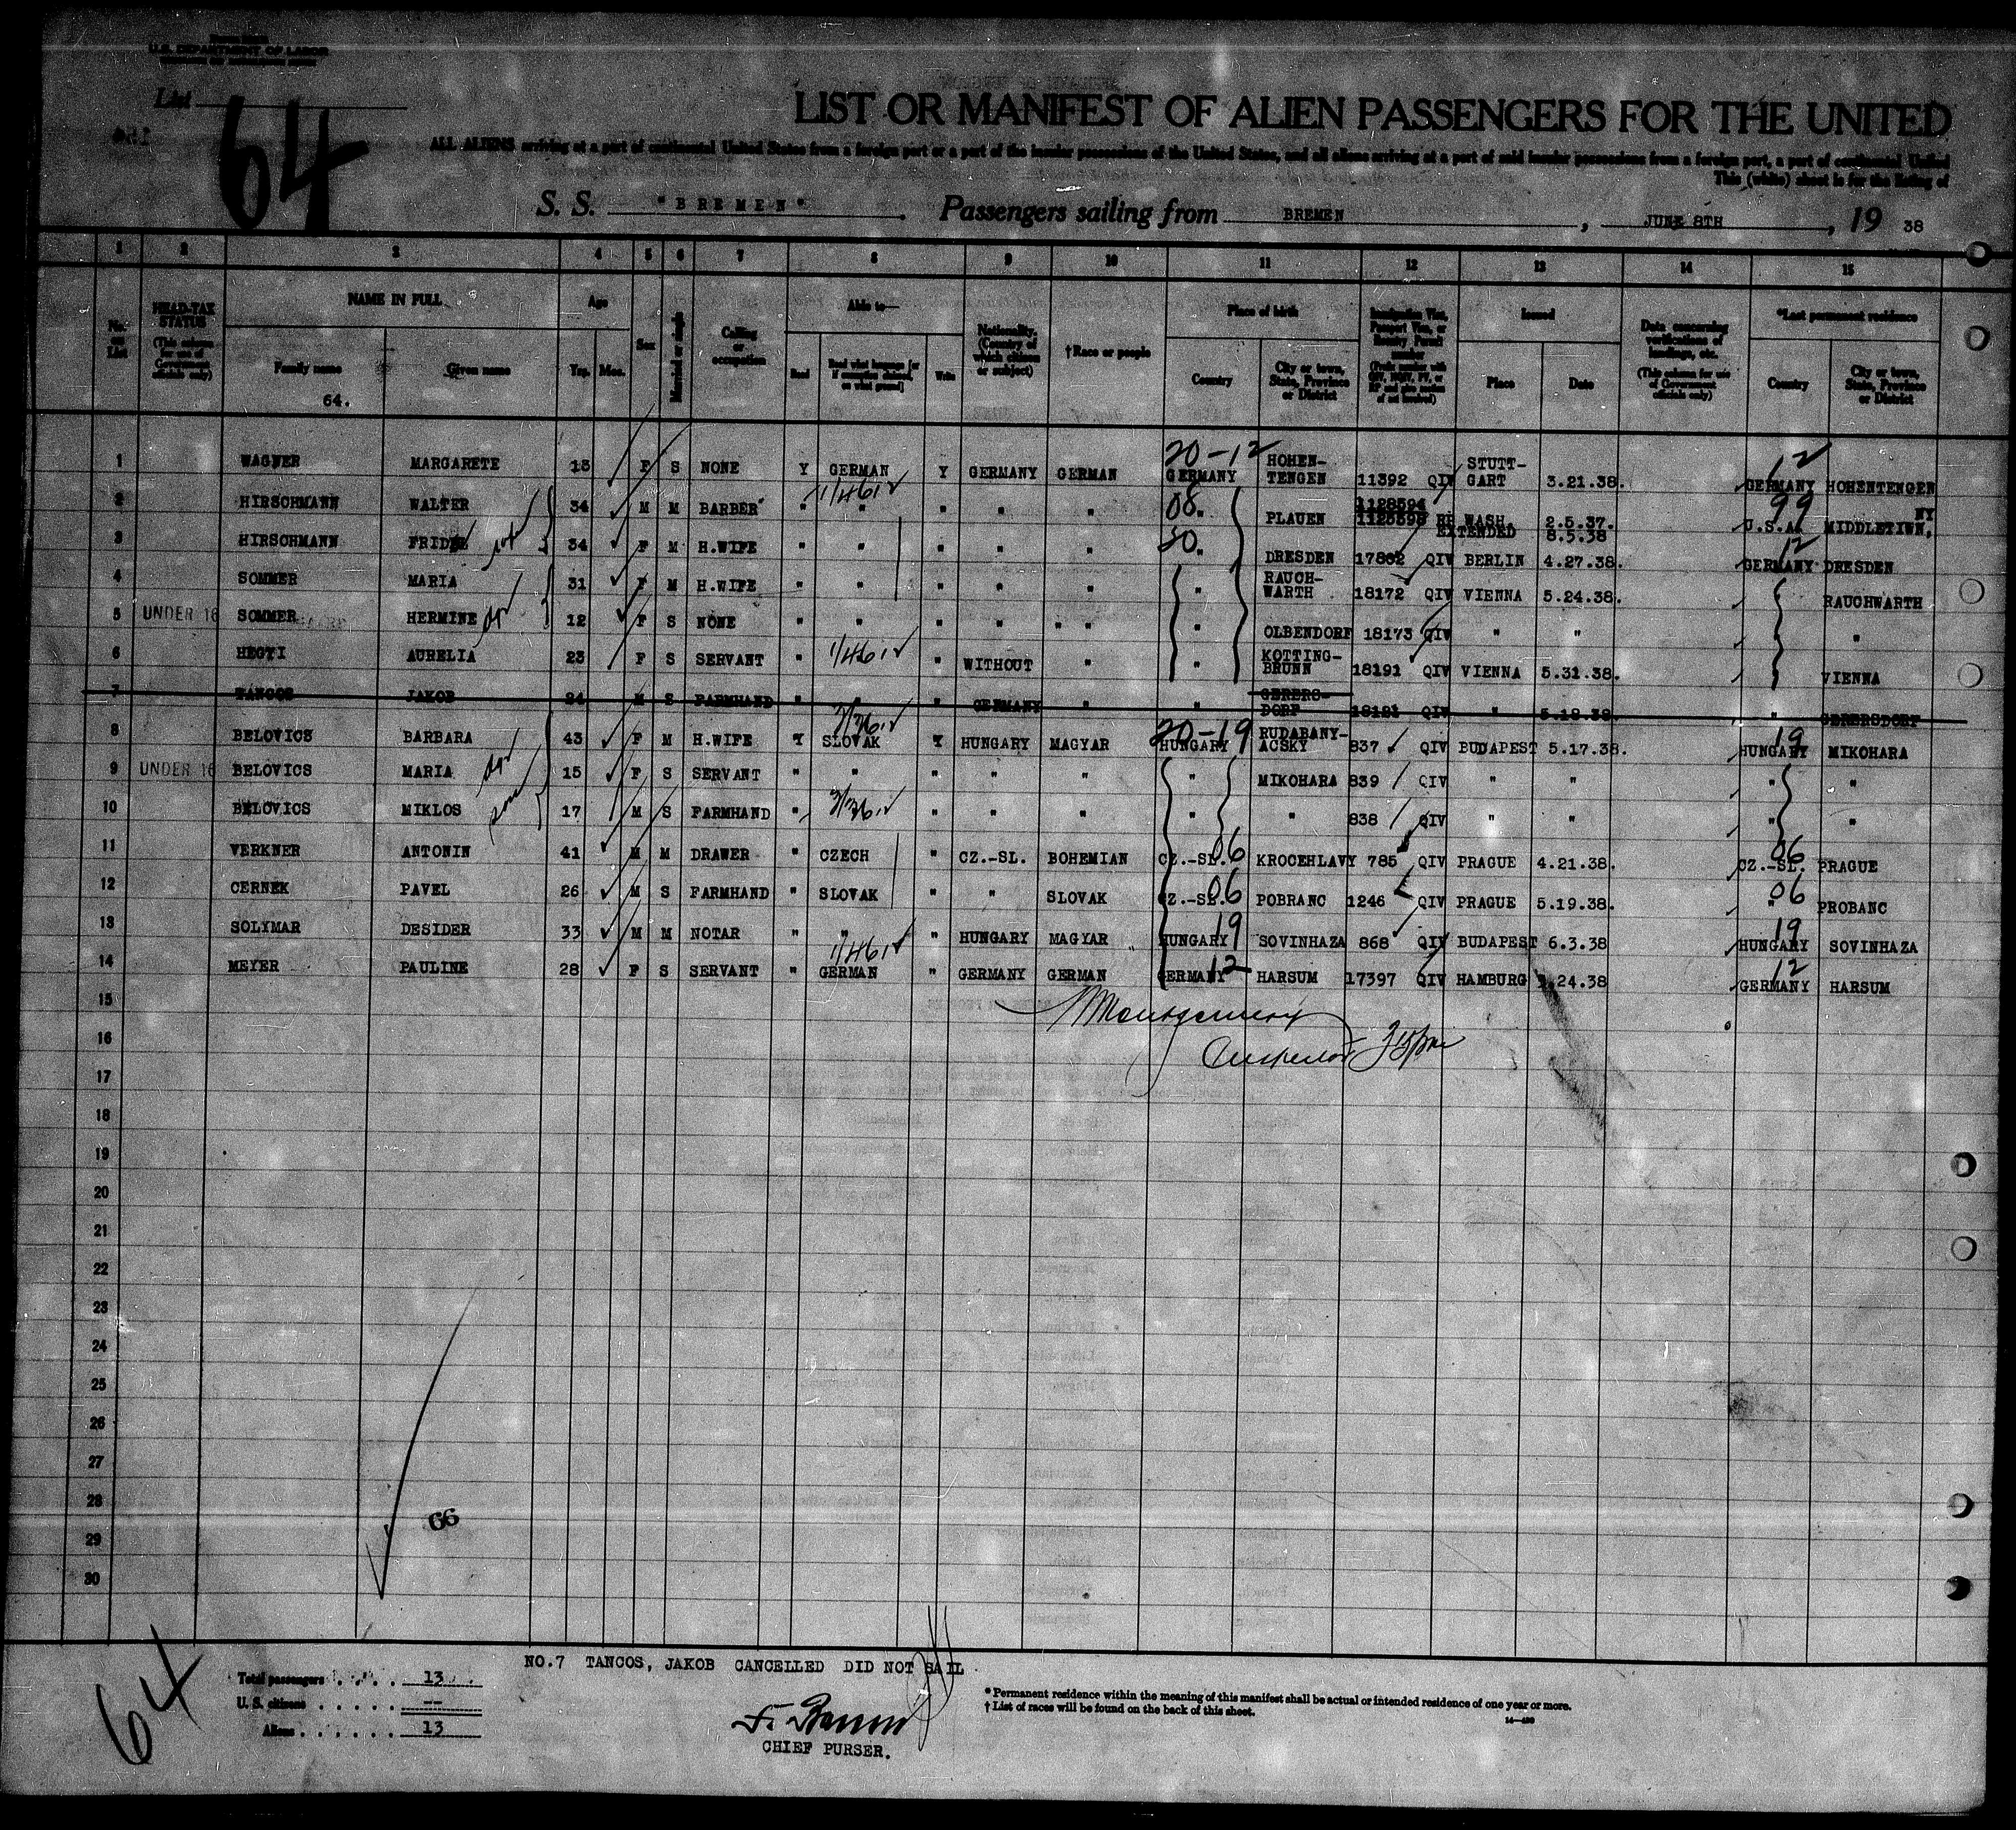 U.S. DEPARTMENT OF LABOR
List
64
LIST OR MANIFEST OF ALIEN PASSENGERS FOR THE UNITED
ALL ALIENS arriving at a port of continental United States from a foreign port or a port of the insular possessions of the United States, and all aliens arriving at a port of said insular possessions from a foreign port, a port of continental United
This (white) sheet is for the listing of
S. S. "BREMEN" Passengers sailing from BREMEN, JUNE 8TH, 19 38
1 2 3 4 5 6 7 8 9 10 11 12 13 14 15
No. on List
HEAD-TAX STATUS (This column for use of Government officials only)
NAME IN FULL Family name Given name
64.
Age Yrs. Mos.
Sex
Married or single
Calling or occupation
Able to— Read Read what language [or if exemption claimed, on what ground] Write
Nationality. (Country of which citizen or subject)
†Race or people
Place of birth Country City or town, State, Province or District
Immigration Visa, Passport Visa, or Reentry Permit number
Issued Place Date
Data concerning verifications of landings, etc. (This column for use of Government officials only)
*Last permanent residence Country City or town, State, Province or District
1 WAGNER MARGARETE F S NONE Y GERMAN Y GERMANY GERMAN 20-12 GERMANY HOHEN-TENGEN 11392 QIV STUTT-GART 3.21.38. 12 GERMANY HOHENTENGEN
2 HIRSCHMANN WALTER 34 M M BARBER " 1/461 " " " " 08. PLAUEN WASH. 2.5.37. EXTENDED 8.5.38 99 U.S.A. NY
3 HIRSCHMANN 34 F M H.WIFE " " " " " DRESDEN QIV BERLIN 4.27.38. 12 GERMANY DRESDEN
4 SOMMER MARIA 31 F M H.WIFE " " " " " " RAUCH-WARTH 18172 QIV VIENNA 5.24.38. RAUCHWARTH
5 UNDER 16 SOMMER HERMINE 12 F S NONE " " " " " " OLBENDORF 18173 QIV " " "
6 HEGYI AURELIA 23 F S SERVANT " 1/461 " WITHOUT " " KOTTING-BRUNN 18191 QIV VIENNA 5.31.38. VIENNA
7 TANCOS JAKOB 24 M S FARMHAND " " GERMANY " " GERERS-DORF 18181 QIV " 5.18.38. " GERERSDORF
8 BELOVICS BARBARA 43 F M H.WIFE Y SLOVAK Y HUNGARY MAGYAR 20-19 HUNGARY RUDABANY-ACSKY 837 QIV BUDAPEST 5.17.38. 19 HUNGARY MIKOHARA
9 UNDER 16 BELOVICS MARIA 15 F S SERVANT " " " " " " MIKOHARA 839 QIV " " " "
10 BELOVICS MIKLOS 17 M S FARMHAND " " " " " " 838 QIV " " " "
11 VERKNER ANTONIN 41 M M DRAWER " CZECH " CZ.-SL. BOHEMIAN CZ.-SL. 06 KROCEHLAVY 785 QIV PRAGUE 4.21.38. 06 CZ.-SL. PRAGUE
12 CERNEK PAVEL 26 M S FARMHAND " SLOVAK " " SLOVAK CZ.-SL. 06 POBRANC 1246 QIV PRAGUE 5.19.38. 06 " PROBANC
13 SOLYMAR DESIDER 33 M M NOTAR " " " HUNGARY MAGYAR HUNGARY 19 SOVINHAZA 868 QIV BUDAPEST 6.3.38 19 HUNGARY SOVINHAZA
14 MEYER PAULINE 28 F S SERVANT " 1/461 GERMAN " GERMANY GERMAN GERMANY 12 HARSUM 17397 QIV HAMBURG 24.38 12 GERMANY HARSUM
15
Montgomery
16
Inspector
17
18
19
20
21
22
23
24
25
26
27
28
66
29
30
NO.7 TANCOS, JAKOB CANCELLED DID NOT SAIL
64
Total passengers . . . . 13
U. S. citizens . . . . . --
Aliens . . . . . . 13
CHIEF PURSER.
* Permanent residence within the meaning of this manifest shall be actual or intended residence of one year or more.
† List of races will be found on the back of this sheet.